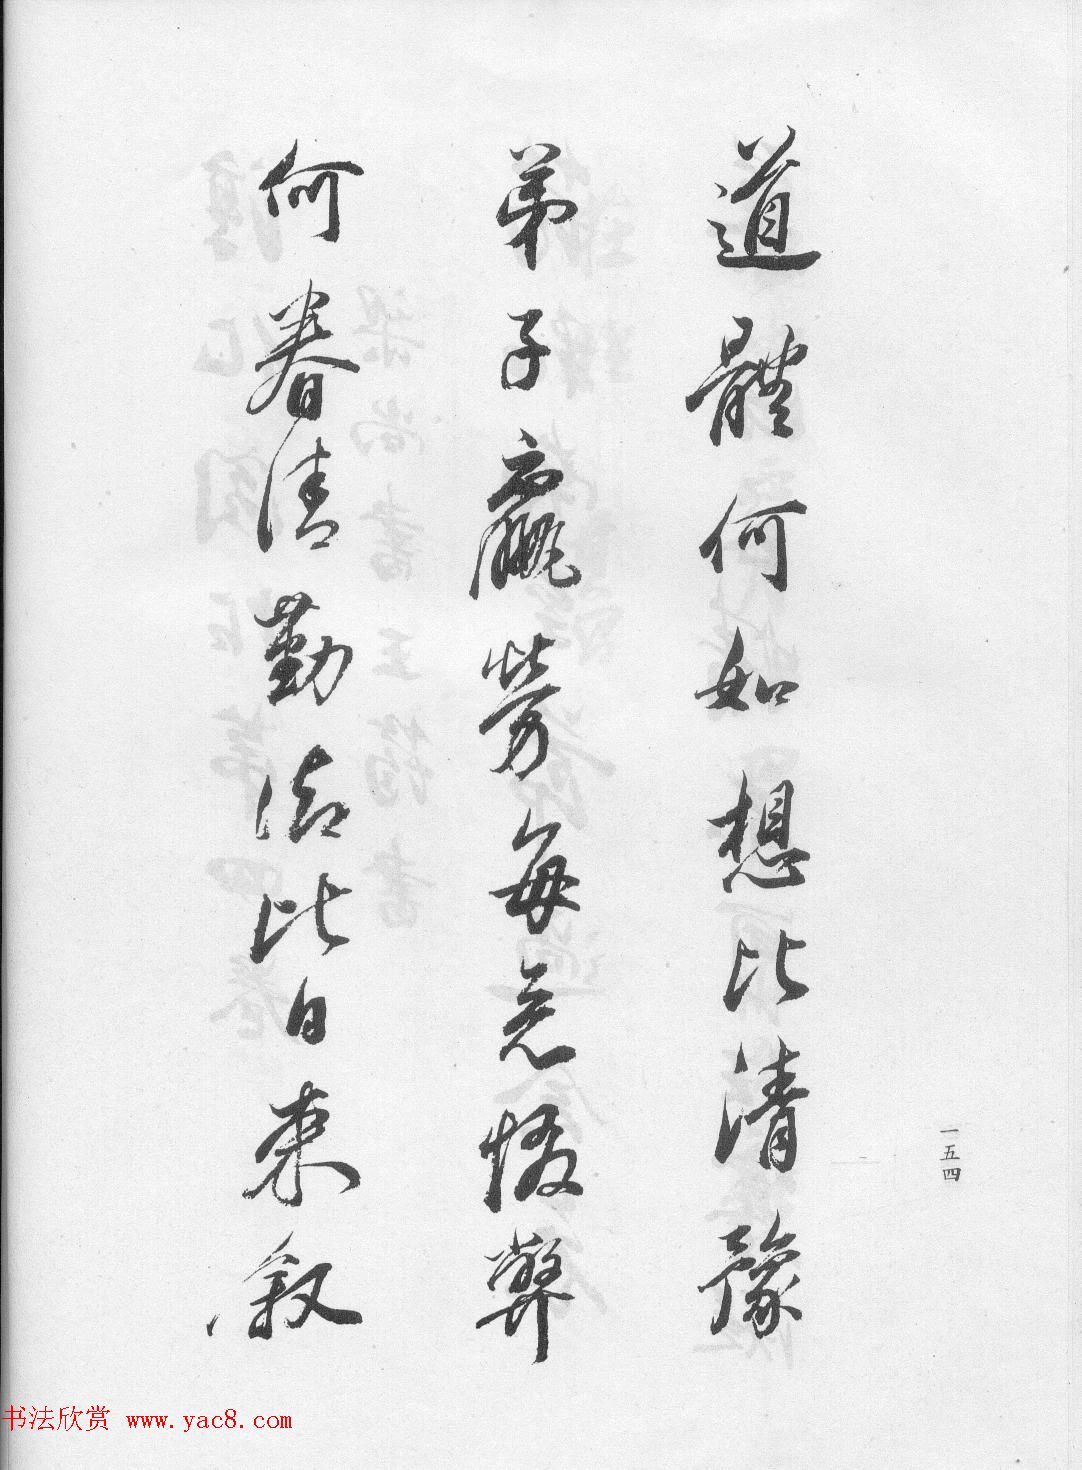 道體何如想比清豫
弟子羸勞每惡惙弊
何眷清勤比日來敘
一五四
书法欣赏 www.yac8.com